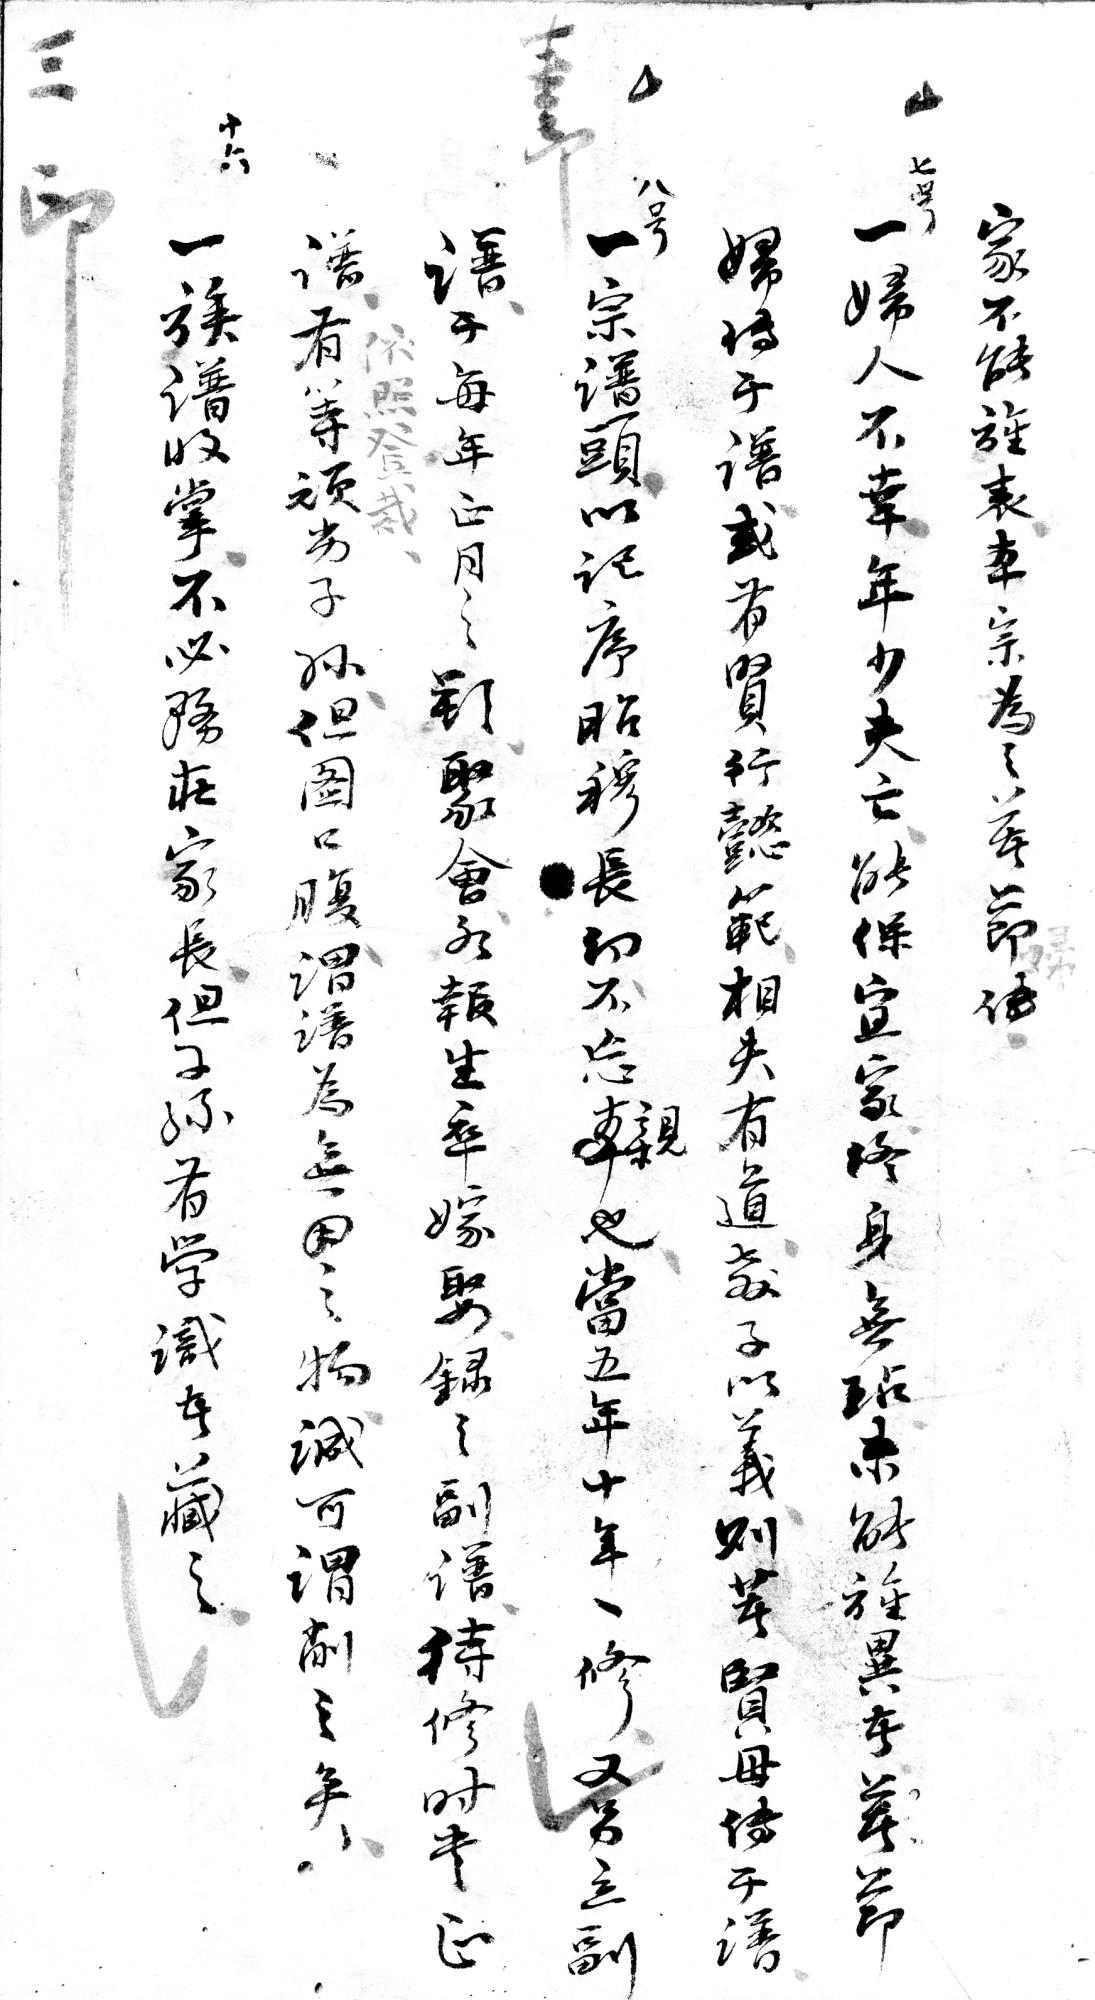 家不能旌表本宗為之算節傳
婦
七号
一婦人不幸年少夫亡能保宜家終身無玷未能旌異者算節
婦傳于譜或有賢行懿範相夫有道教子以義則算賢母傳于譜
八号
一宗譜頭以記序昭穆長幼不忘親也當五年十年一修又另立副
譜于每年正月之朔聚會各報生卒嫁娶錄之副譜待修时書正
譜有等頑劣子孫但圖口腹謂譜為無用之物誠可謂削之矣
依照登裁
十六
一族譜收掌不必務在家長但子孫有学識者藏之
三印